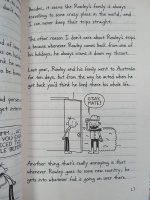 Besides, it seems like Rowley's family is always
travelling to some crazy place in the world, and
I can never keep their trips straight.
The other reason I don't care about Rowley's trips
is because whenever Rowley comes back from one of
his holidays, he always shoves it down my throat.
Last year, Rowley and his family went to Australia
for ten days, but from the way he acted when he
got back you'd think he lived there his whole life.
MATE!
Another thing that's really annoying is that
whenever Rowley goes to some new country, he
gets into whatever fad is going on over there.
17